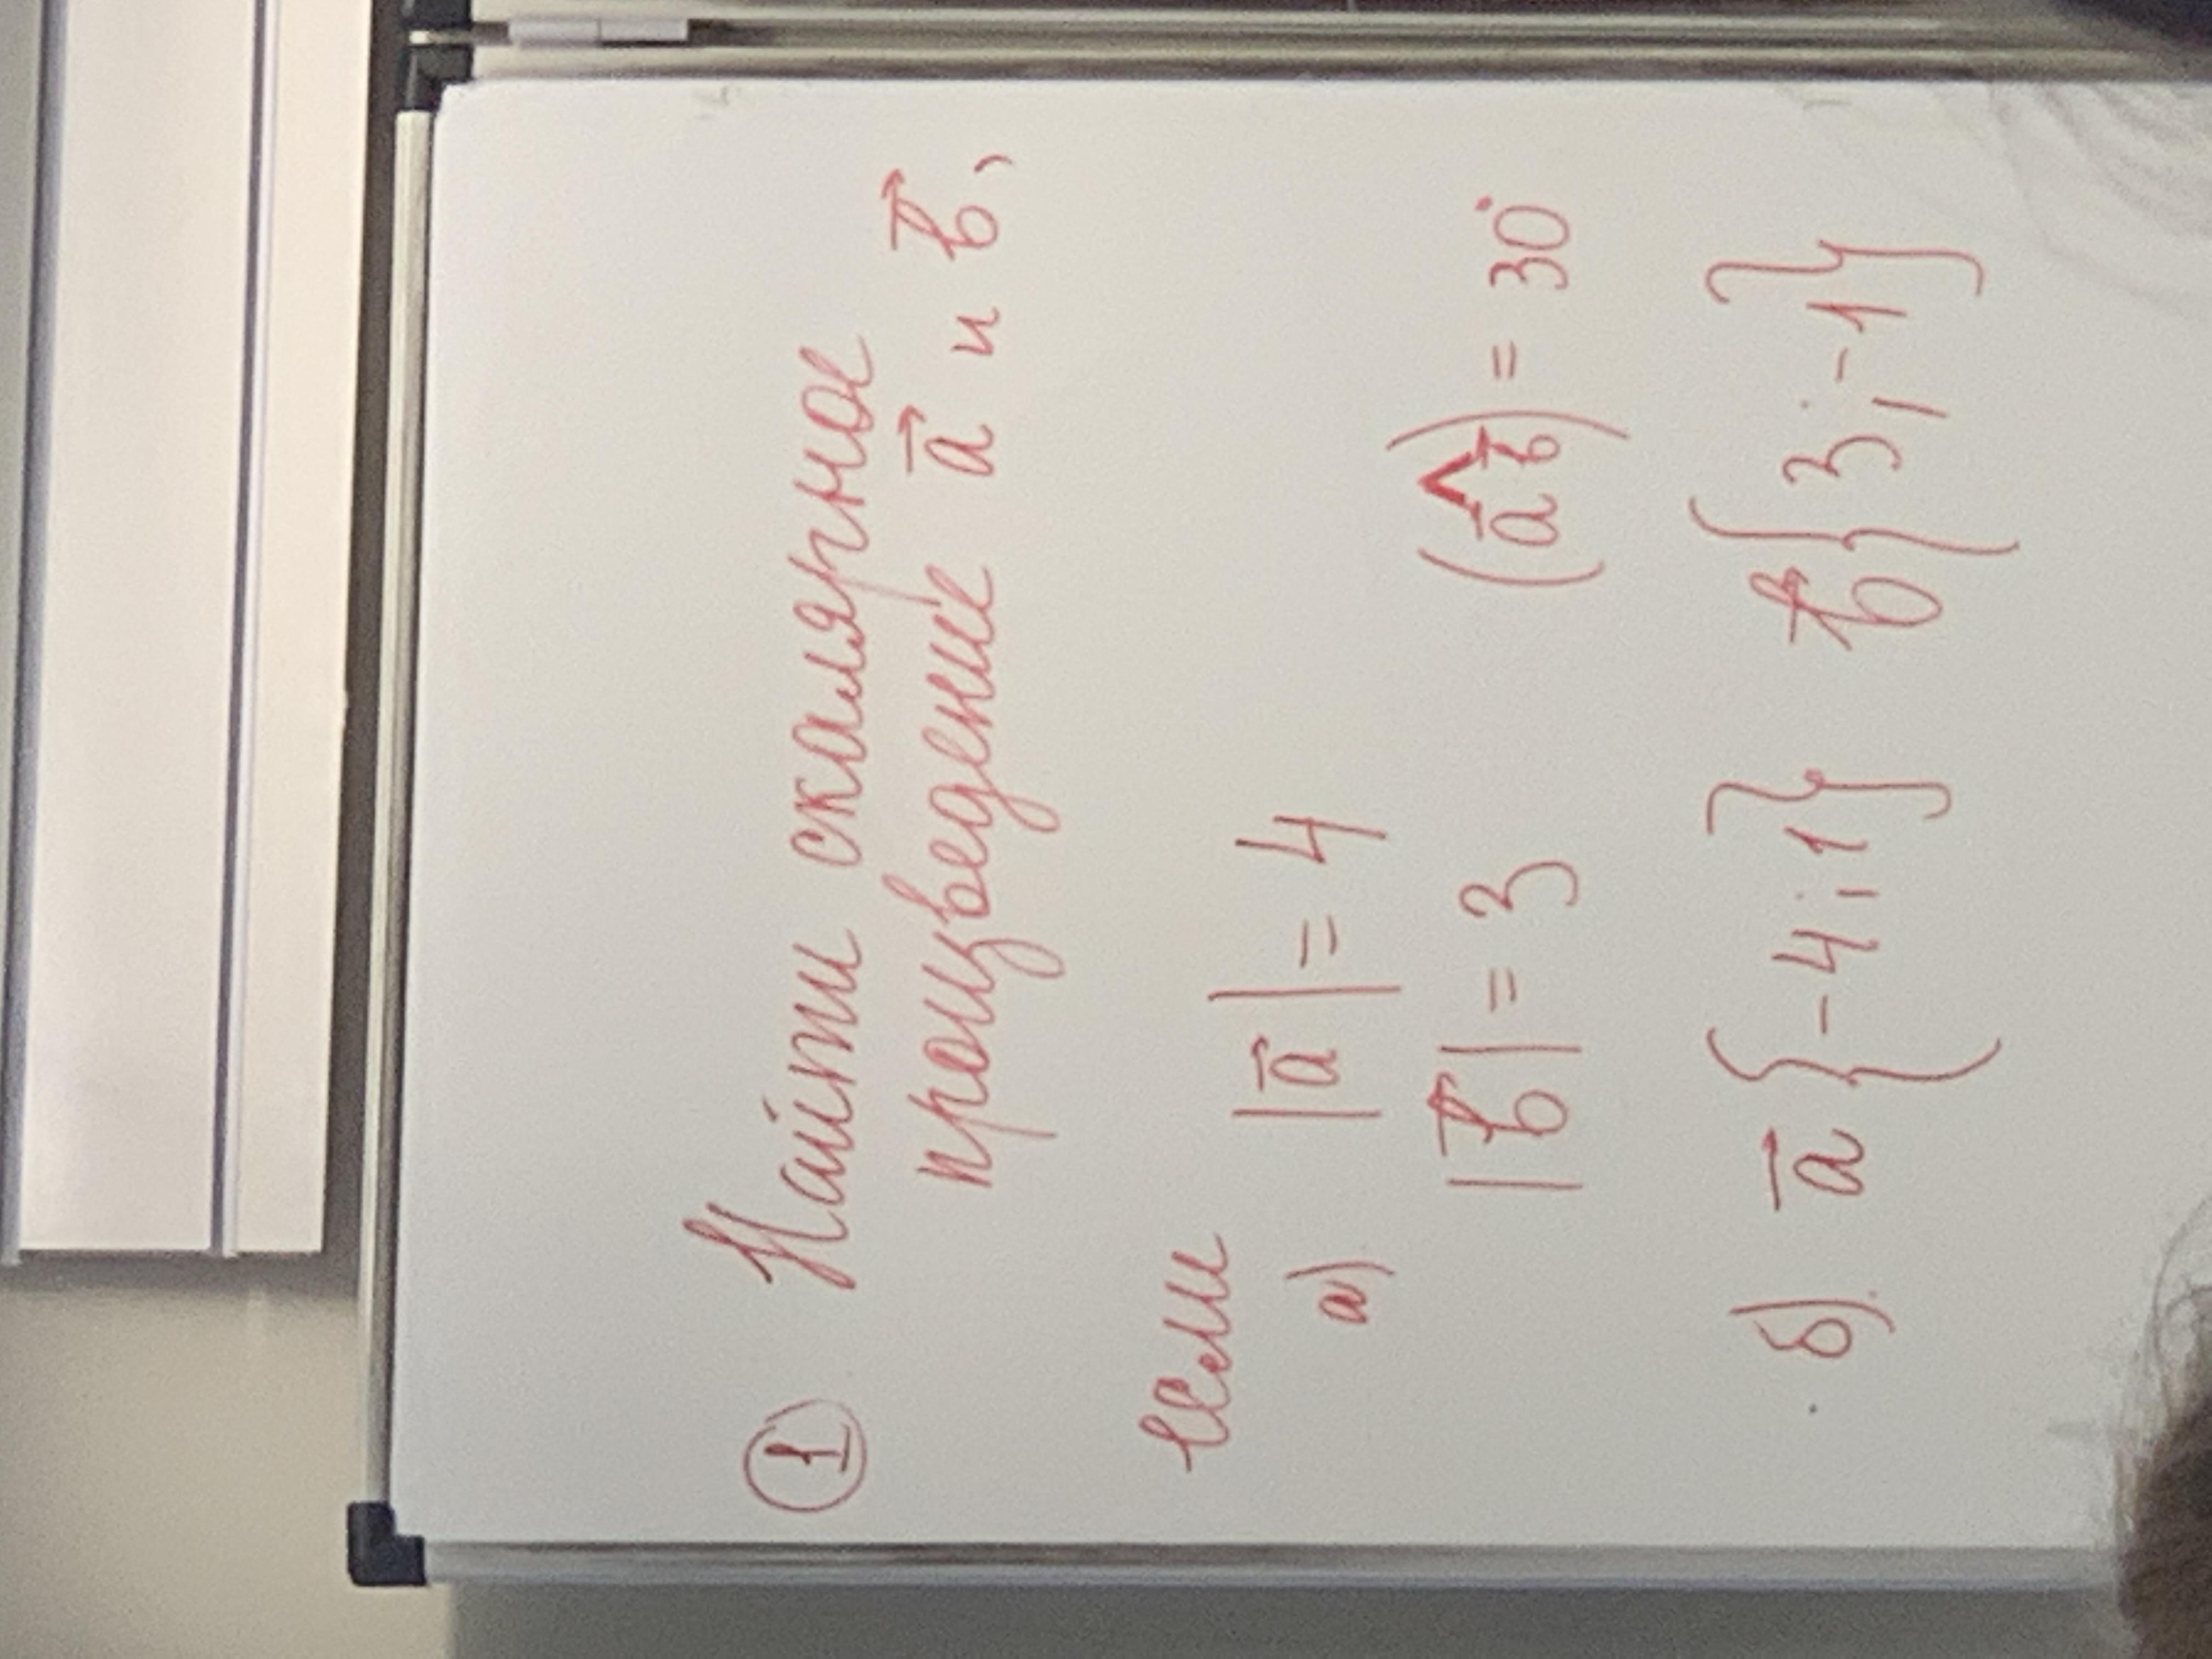 ① Найти скалярное
произведение a⃗ и b⃗,
если
а) |a⃗| = 4
|b⃗| = 3 (a⃗^b⃗) = 30°
б) a⃗ {-4; 1} b⃗ {3; -1}